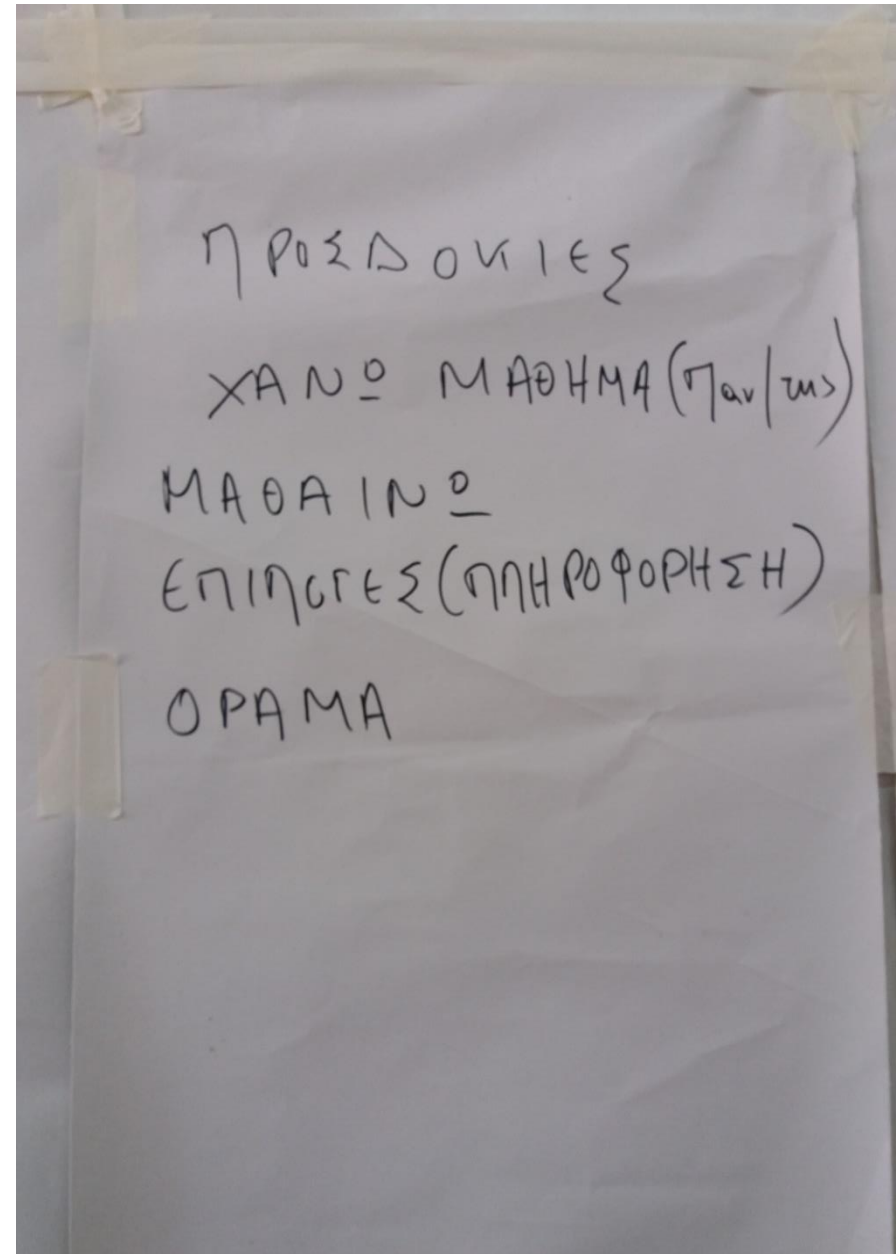 ΠΡΟΣΔΟΚΙΕΣ
ΧΑΝΩ ΜΑΘΗΜΑ (Παν/της)
ΜΑΘΑΙΝΩ
ΕΠΙΛΟΓΕΣ (ΠΛΗΡΟΦΟΡΗΣΗ)
ΟΡΑΜΑ